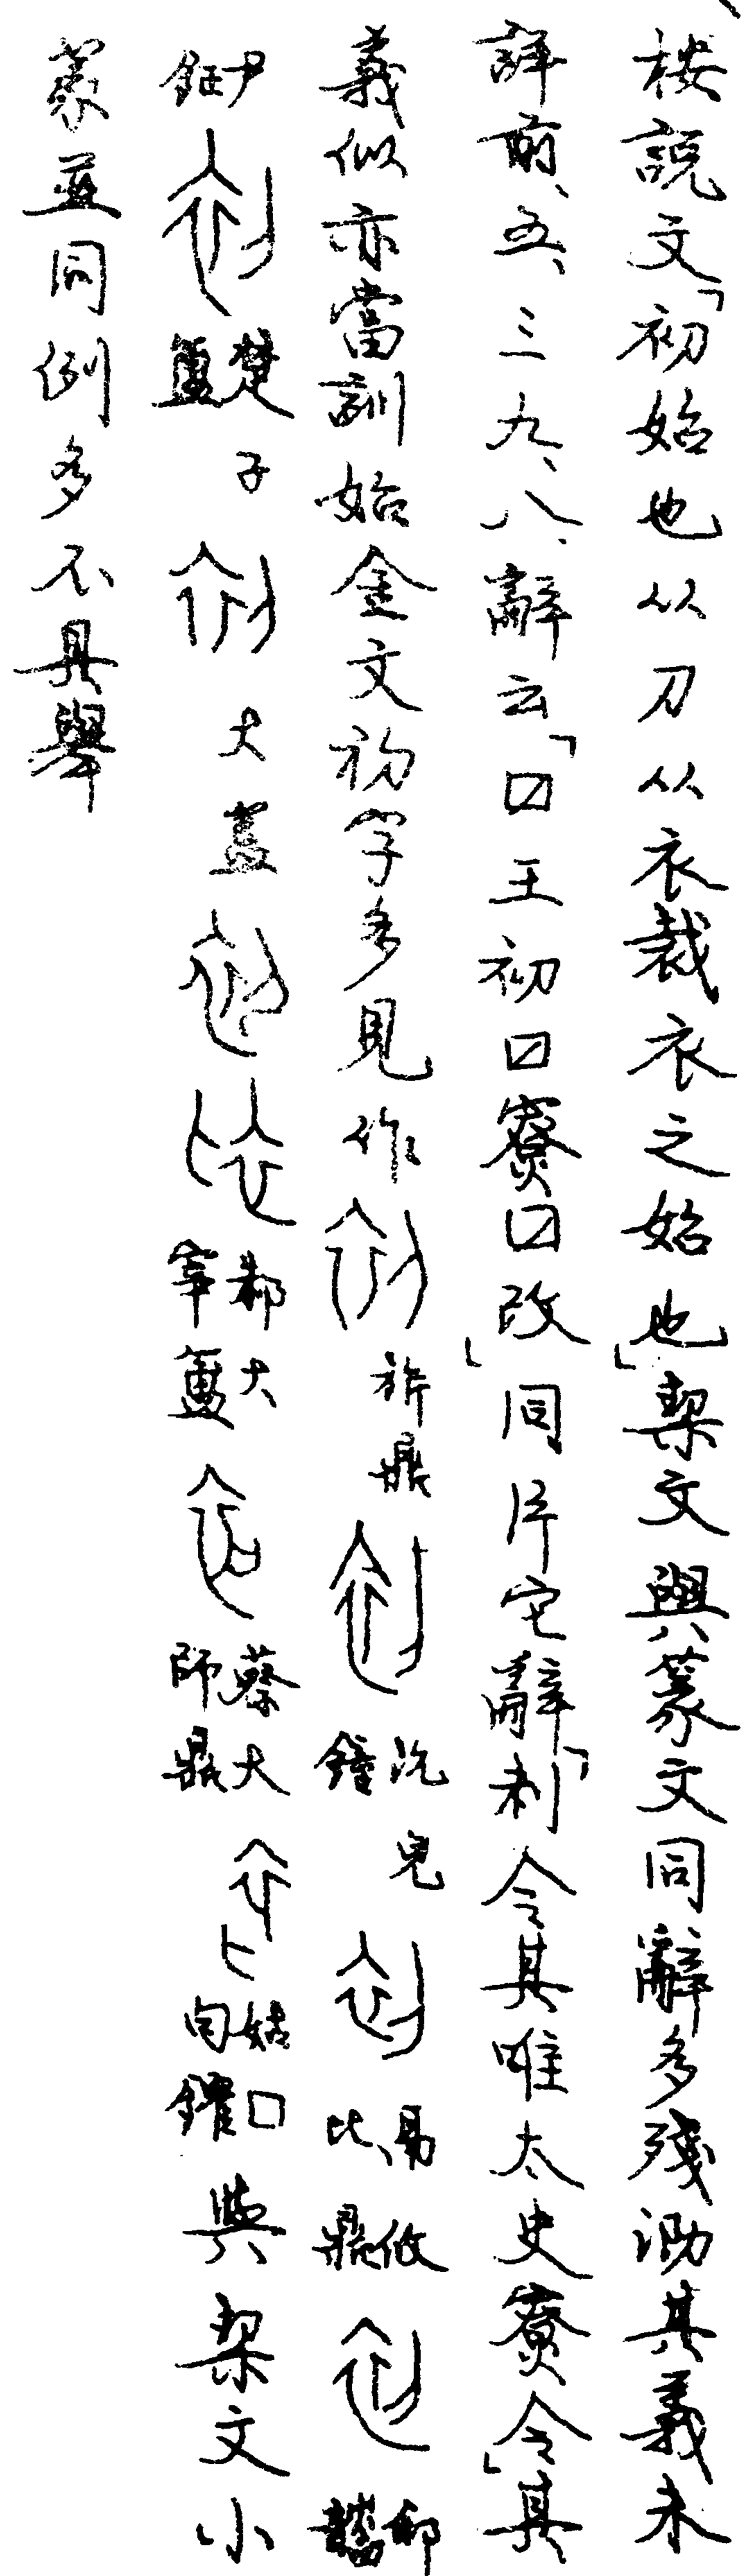 按說文「初始也从刀从衣裁衣之始也」栔文與篆文同辭多殘泐其義未
詳前、五、三九、八、辭云「囗王初囗寮囗改」同片它辭「利令其唯太史寮令」其
義似亦當訓始金文初字多見作 旂鼎 沇兒鐘 鬲攸比鼎 邾
鉦尹 楚子簠 大簋 都大宰簠 蔡大師鼎 姑口句鑃 與栔文小
篆並同例多不具舉